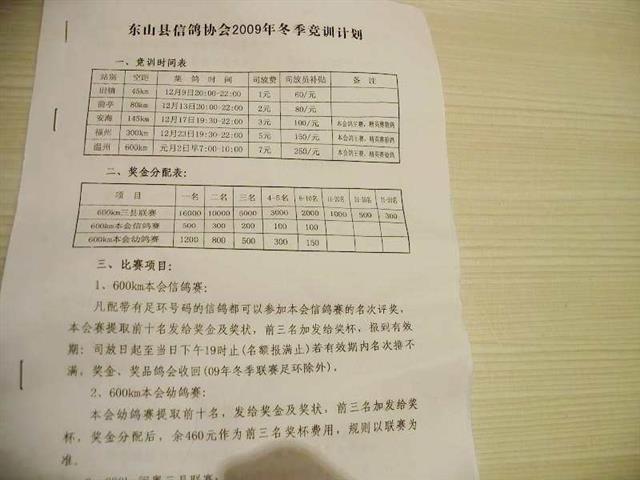 东山县信鸽协会2009年冬季竞训计划
一、竞训时间表
站别 空距 集鸽时间 司放费 司放员补贴 备注
旧镇 45km 12月9日20:00-22:00 1元 60/元
80km 12月13日20:00-22:00 2元 80/元
安海 145km 12月17日19:30-22:00 3元 100/元
福州 300km 12月23日19:30-22:00 5元 150/元
温州 600km 元月2日早7:00-10:00 7元 250/元
二、奖金分配表:
项目 一名 二名 三名 4-5名 6-10名 11-20名
600km三县联赛 16000 10000 5000 3000 2000 1000 500 300
600km本会信鸽赛 500 300 200 100 100
600km本会幼鸽赛 1200 800 500 300 150
三、比赛项目:
1、600km本会信鸽赛:
凡配带有足环号码的信鸽都可以参加本会信鸽赛的名次评奖,
本会赛提取前十名发给奖金及奖状,前三名加发给奖杯,报到有效
期:司放日起至当日下午19时止(名额报满止)若有效期内名次排不
满,奖金、奖品鸽会收回(09年冬季联赛足环除外)。
2、600km本会幼鸽赛:
本会幼鸽赛提取前十名,发给奖金及奖状,前三名加发给奖
杯,奖金分配后,余460元作为前三名奖杯费用,规则以联赛为
准。